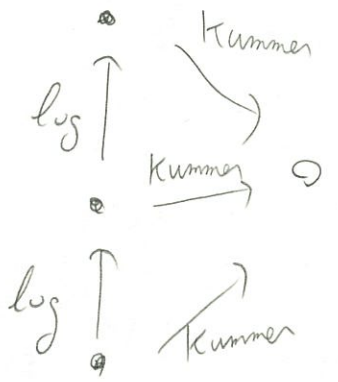 Kummer
log
Kummer
log
Kummer